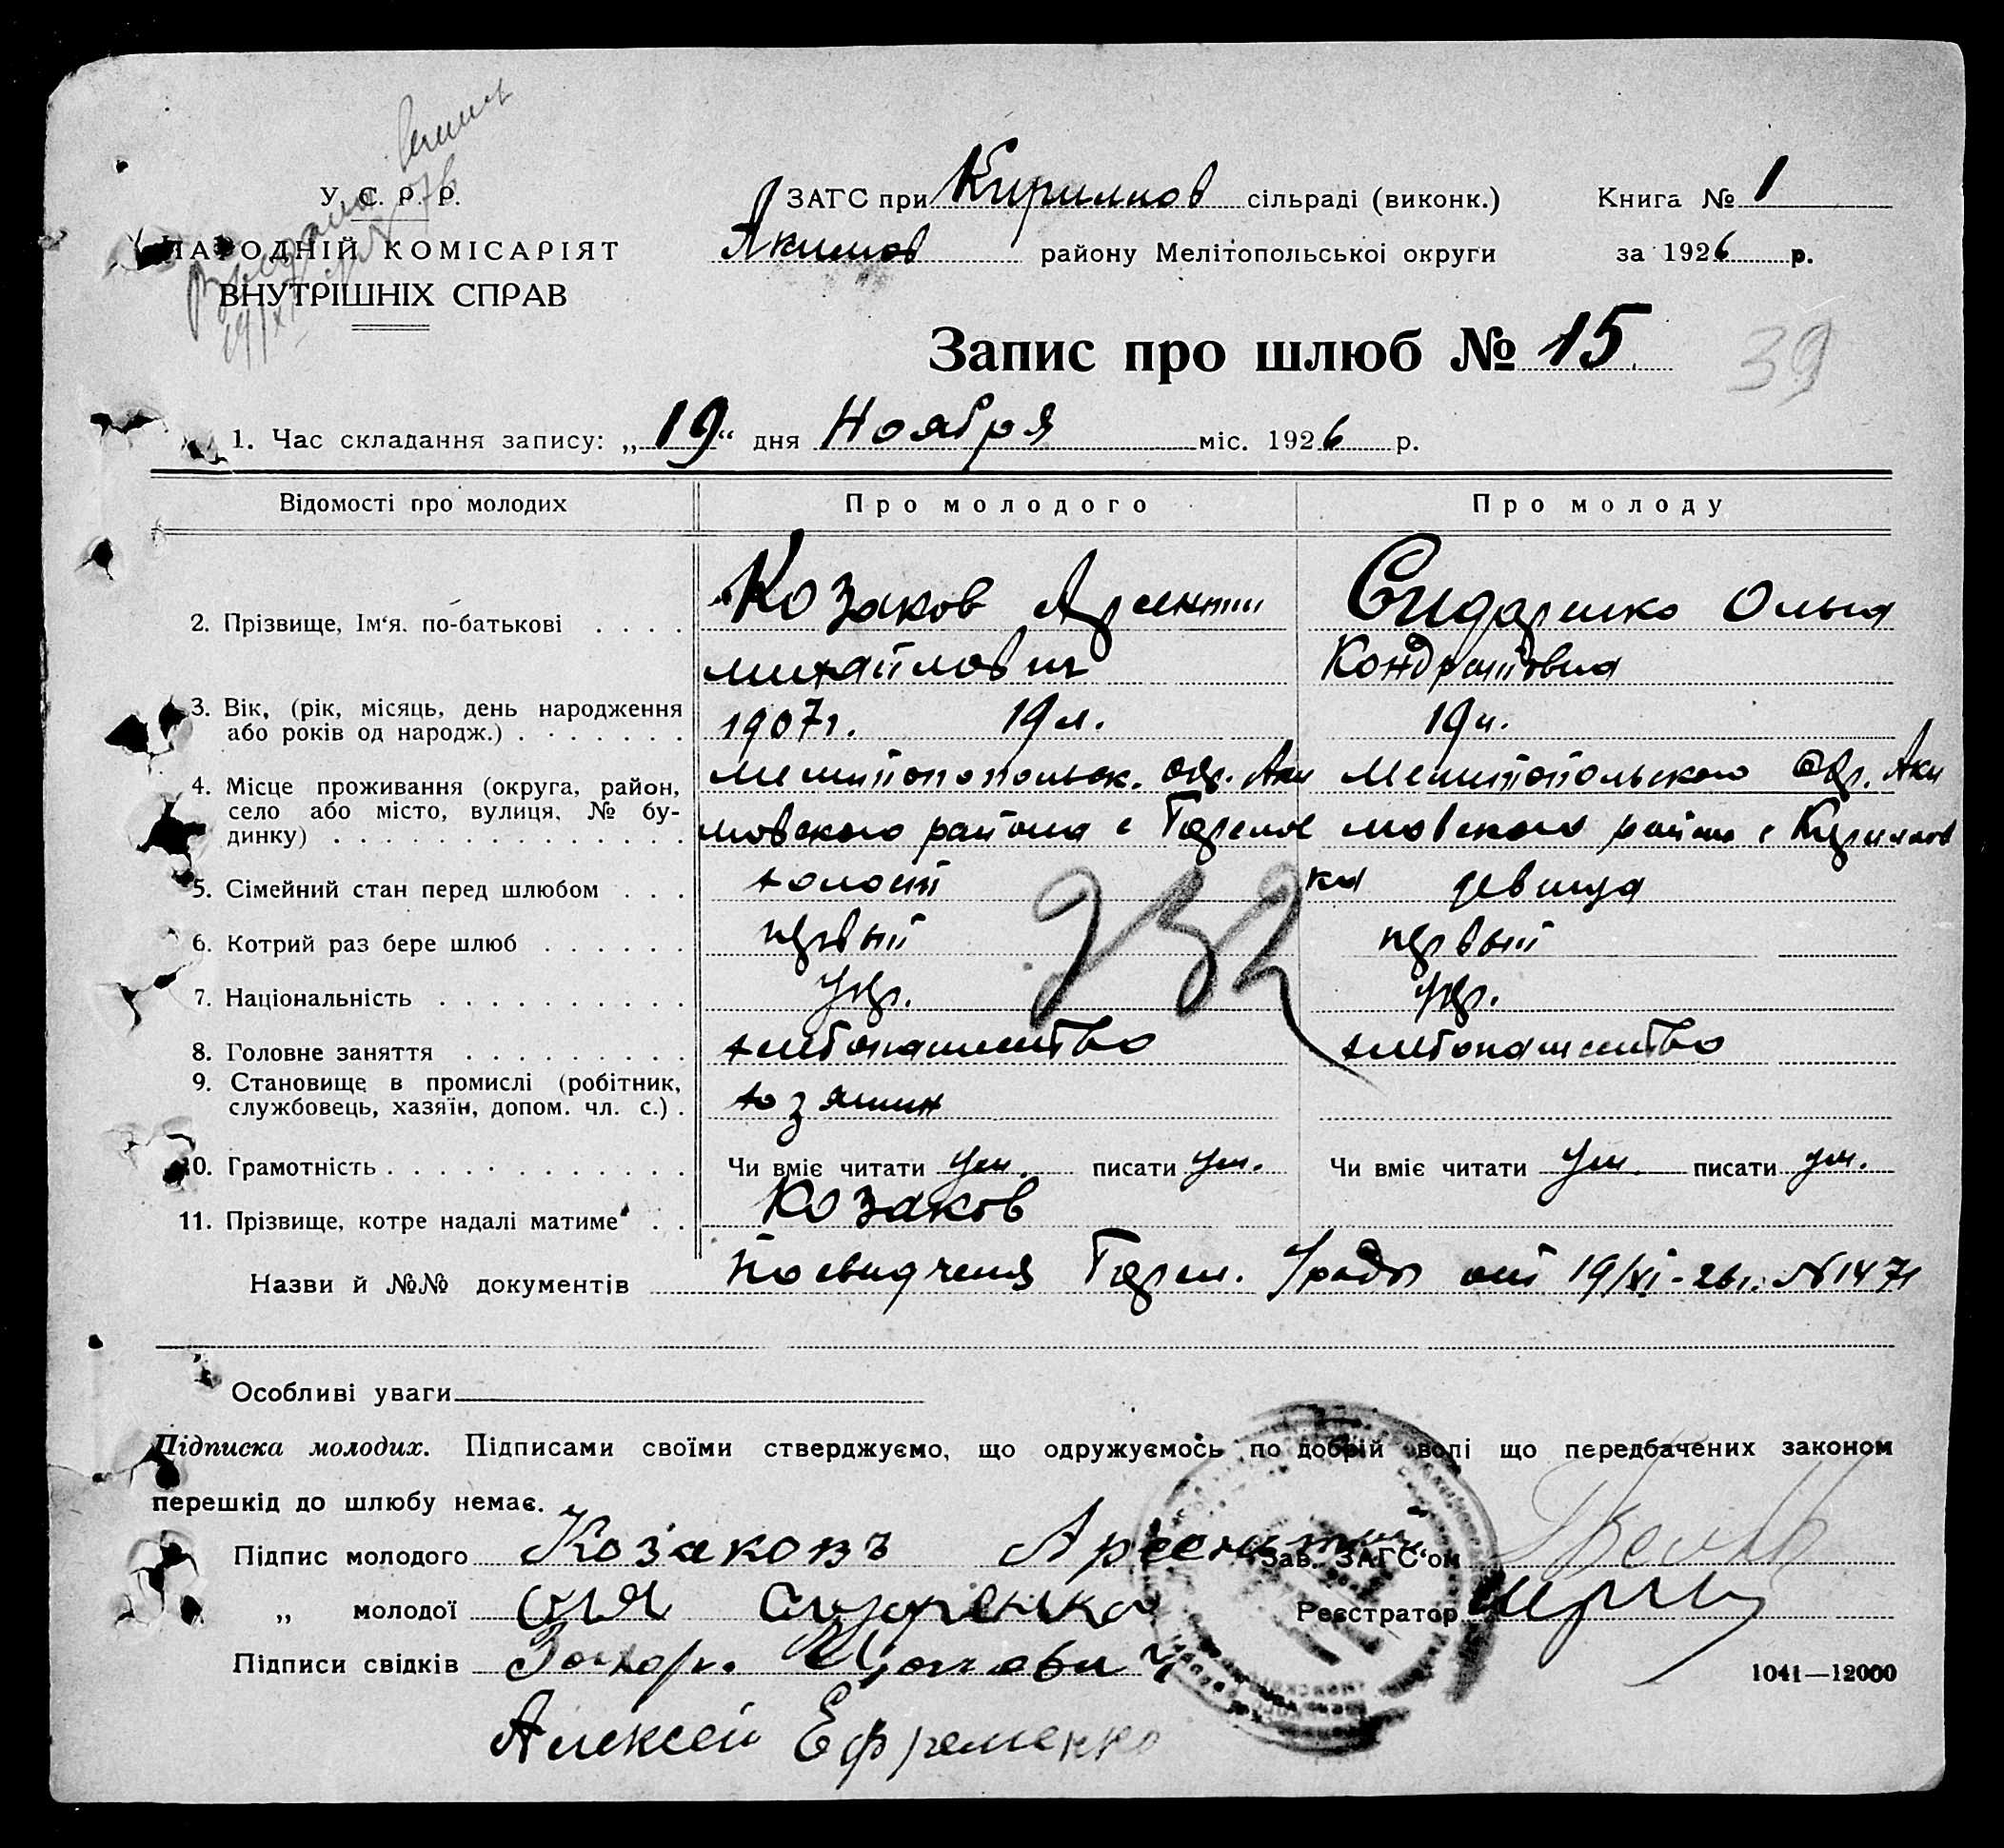 У. С. Р. Р.
НАРОДНІЙ КОМІСАРІЯТ
ВНУТРІШНІХ СПРАВ
ЗАГС при Кирилков сільраді (виконк.) Книга № 1
Якимов району Мелітопольської округи за 1926 р.
Запис про шлюб № 15
39
1. Час складання запису: „19“ дня Ноября міс. 1926 р.
Відомості про молодих Про молодого Про молоду
2. Прізвище, Ім‘я. по-батькові Козаков Арсентий Сидаренко Ольга
михайлович Кондратовна
3. Вік, (рік, місяць, день народження
або років од народж.) 1907г. 19 л. 19 л.
4. Місце проживання (округа, район,
село або місто, вулиця, № будинку)
Мелитопопольск. окр. Аки Мелитопольского Окр. Аки
мовского района с Горелое мовского район с Кирилов
5. Сімейний стан перед шлюбом холост ка девица
6. Котрий раз бере шлюб первый первый
7. Національність Укр. Укр.
232
8. Головне заняття хлебопашество хлебопашество
9. Становище в промислі (робітник,
службовець, хазяїн, допом. чл. с.) хозяин
10. Грамотність Чи вміє читати Ум. писати ум. Чи вміє читати Ум. писати ум.
11. Прізвище, котре надалі матиме Козаков
Назви й №№ документів Посвидченя Горел. С/рады от 19/XI-26г. №1471
Особливі уваги
Підписка молодих. Підписами своїми стверджуємо, що одружуємось по добрій волі що передбачених законом
перешкід до шлюбу немає.
Підпис молодого Козаковъ Арсентий Зав. ЗАГС‘ом
„ молодої Оля Сидоренко Реєстратор
Підписи свідків Захар.
1041—12000
Алексей Ефременко